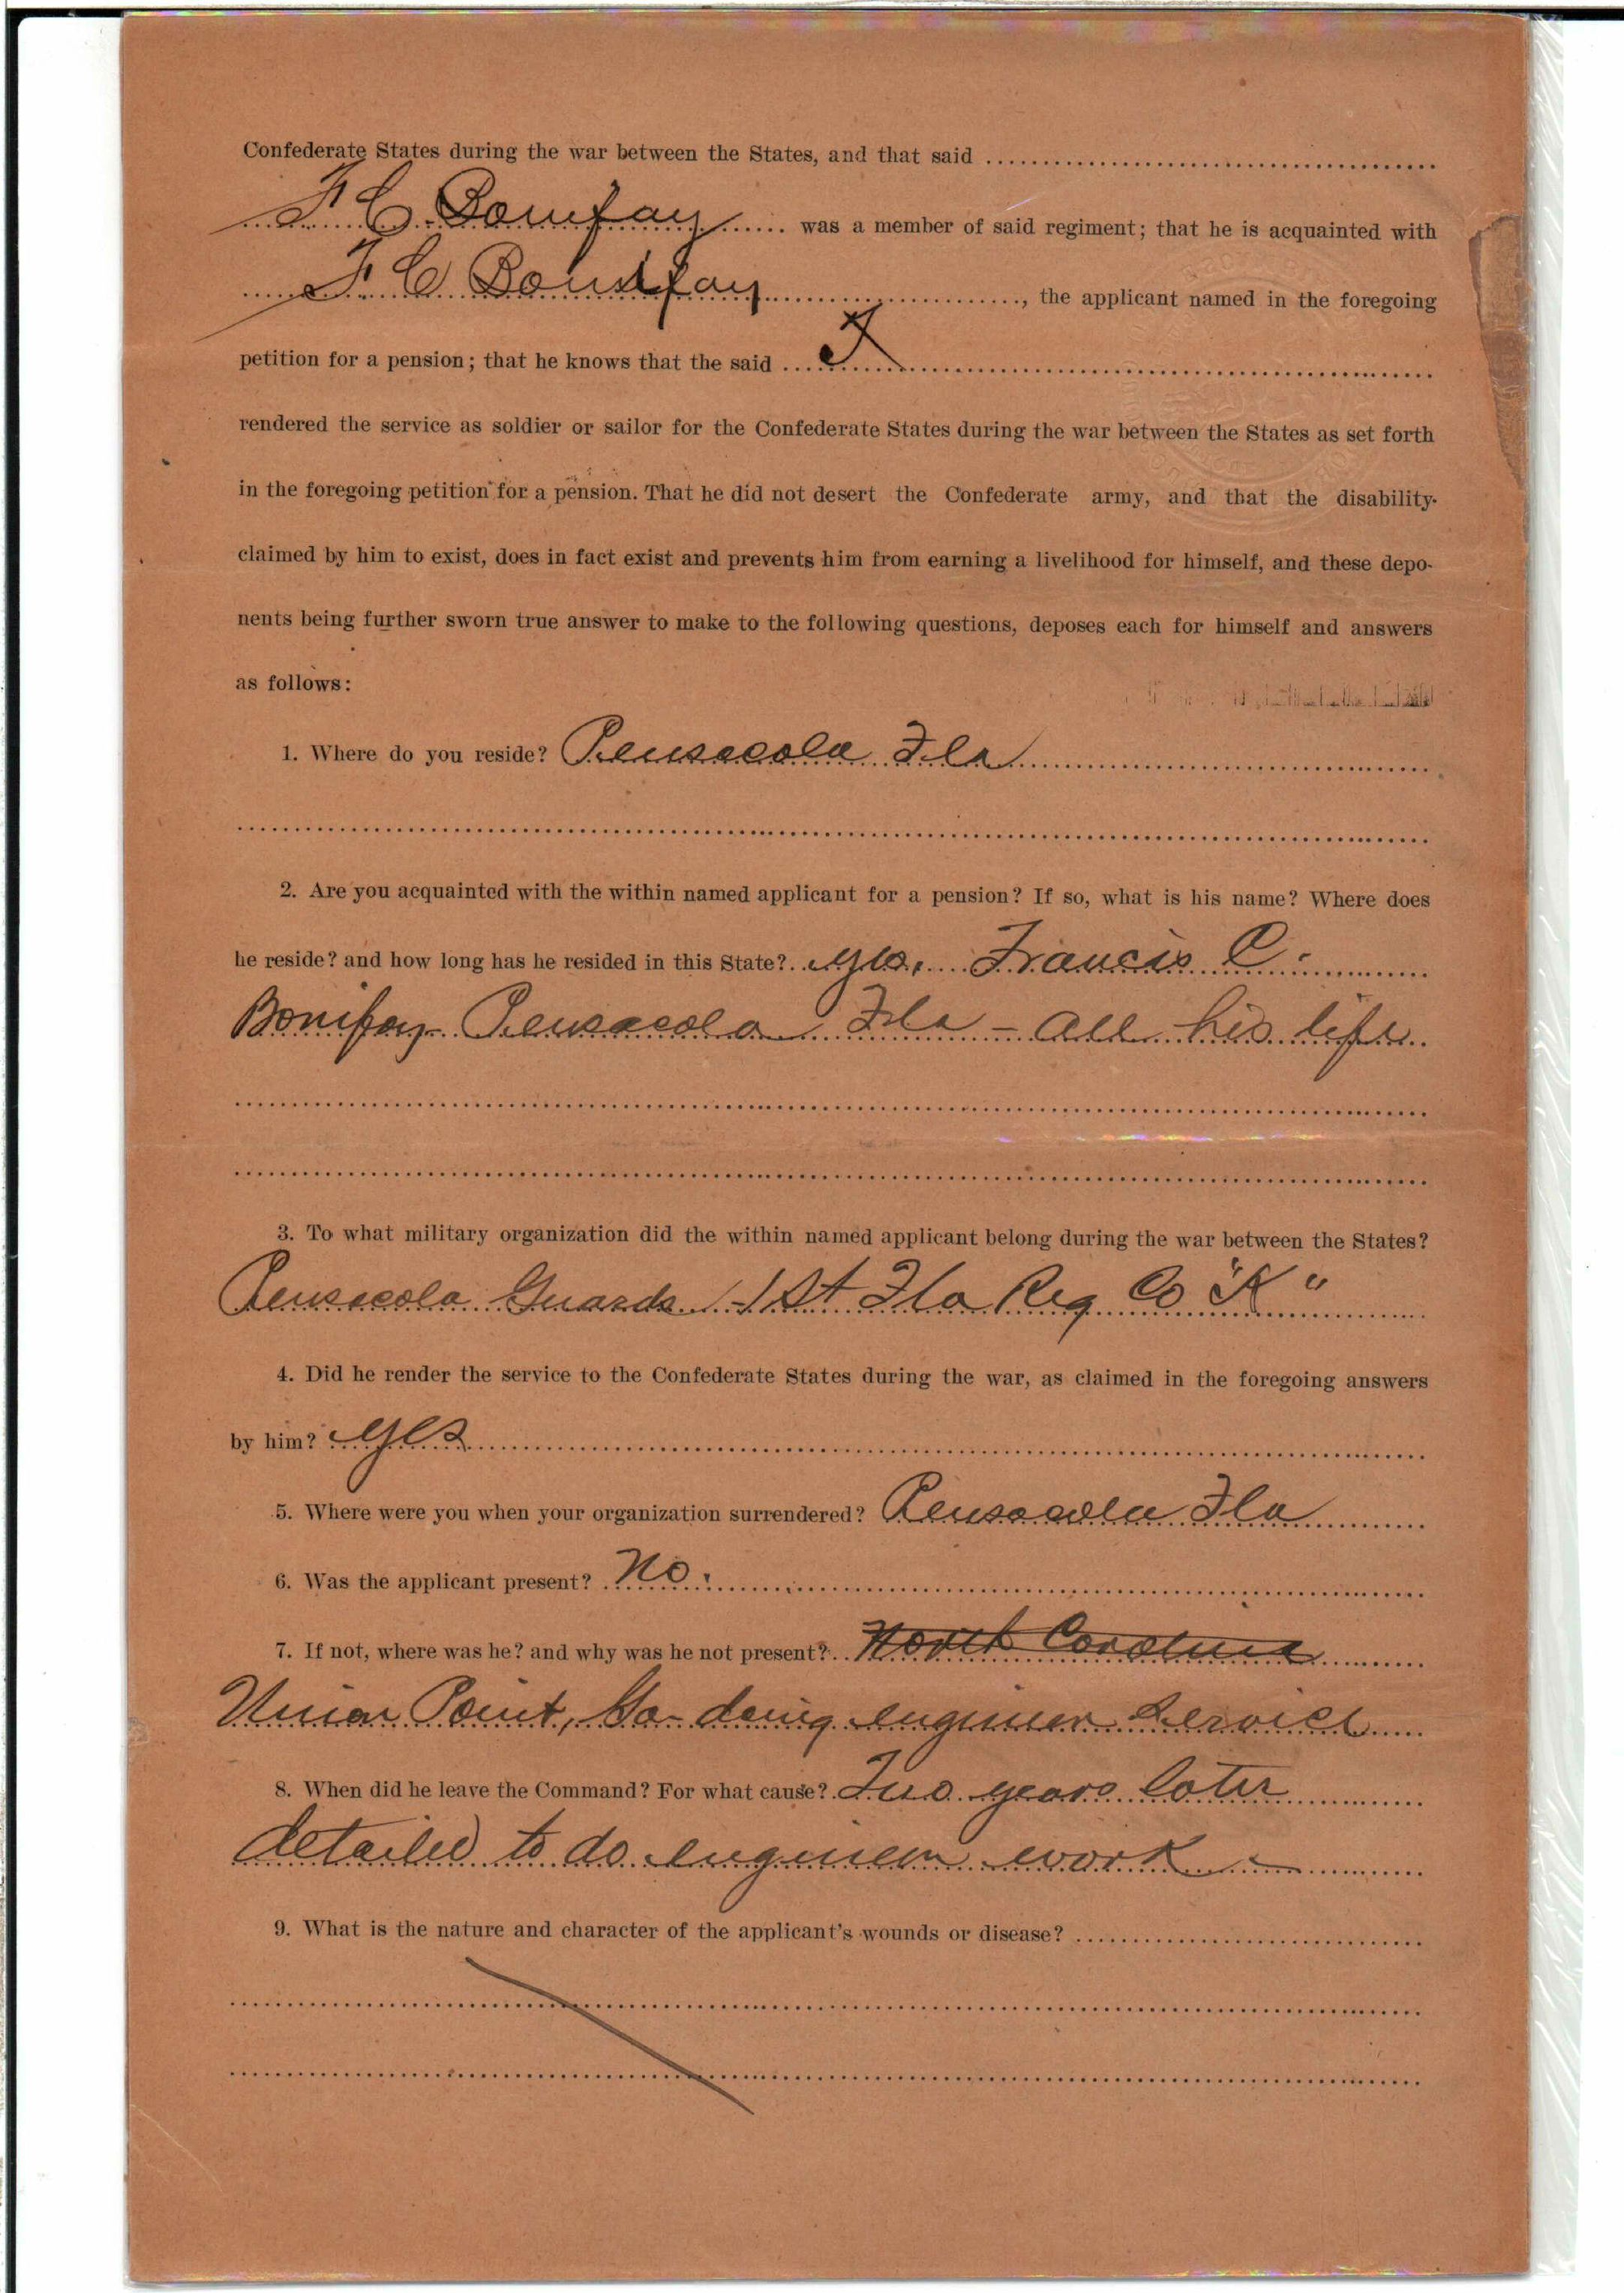 Confederate States during the war between the States, and that said
F C Bonifay was a member of said regiment; that he is acquainted with
F C Bonifay, the applicant named in the foregoing
petition for a pension; that he knows that the said
rendered the service as soldier or sailor for the Confederate States during the war between the States as set forth
in the foregoing petition for a pension. That he did not desert the Confederate army, and that the disability
claimed by him to exist, does in fact exist and prevents him from earning a livelihood for himself, and these depo-
nents being further sworn true answer to make to the following questions, deposes each for himself and answers
as follows:
1. Where do you reside? Pensacola Fla
2. Are you acquainted with the within named applicant for a pension? If so, what is his name? Where does
he reside? and how long has he resided in this State? Yes, Francis C.
Bonifay Pensacola Fla - All his life
3. To what military organization did the within named applicant belong during the war between the States?
Pensacola Guards - 1st Fla Reg Co "K"
4. Did he render the service to the Confederate States during the war, as claimed in the foregoing answers
by him? Yes
5. Where were you when your organization surrendered? Pensacola Fla
6. Was the applicant present? No.
7. If not, where was he? and why was he not present? North Carolina
Union Point, Ga- doing engineer service
8. When did he leave the Command? For what cause? Two years later
detailed to do engineer work
9. What is the nature and character of the applicant's wounds or disease?